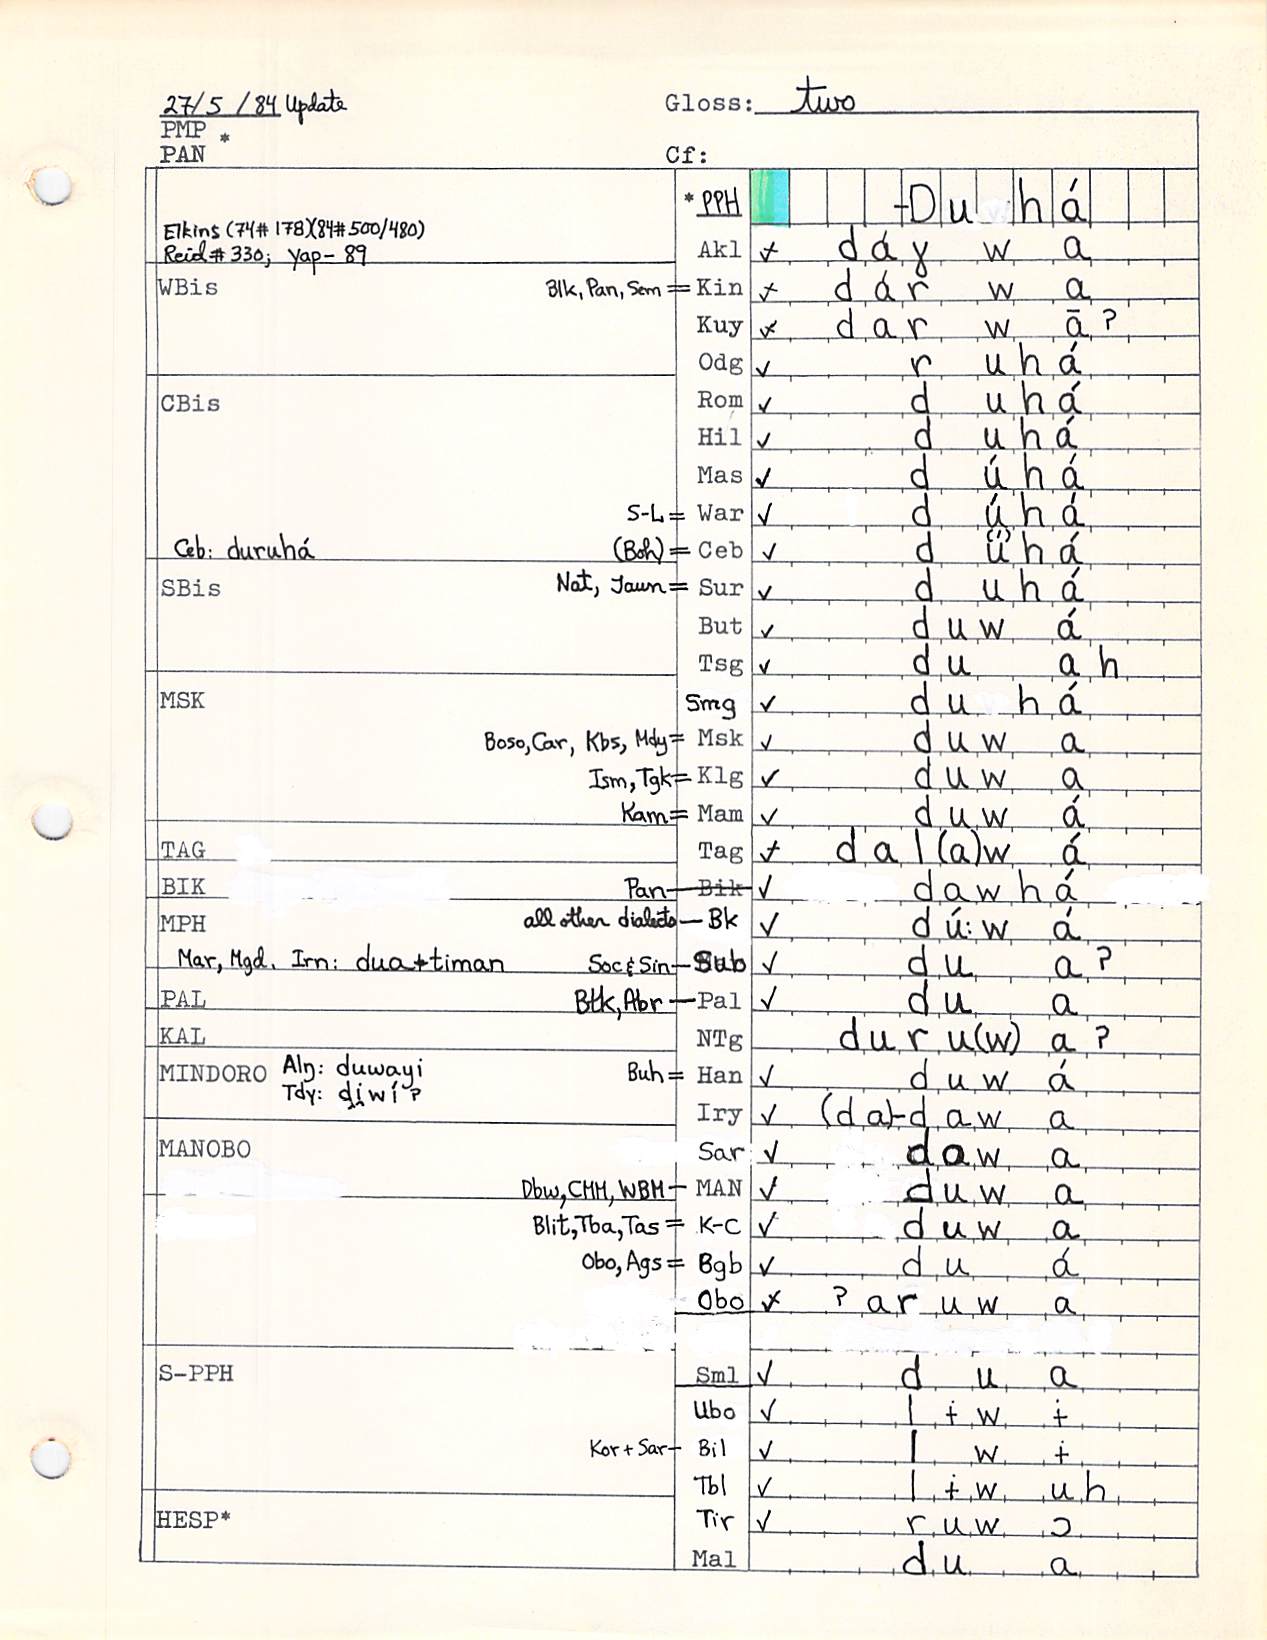 27/5/84 Update Gloss: two
PMP *
PAN Cf:
* PPH -Duhá
Elkins (74# 178)(84#500/480)
Akl ✓ dáɣwa
Reid# 330; Yap- 89
WBis Blk, Pan, Sem = Kin ✓ dárwa
Kuy ✓ darwāʔ
Odg ✓ ruhá
CBis Rom ✓ duhá
Hil ✓ duhá
Mas ✓ dúhá
S-L = War ✓ dúhá
Ceb: duruhá (Boh) = Ceb ✓ d(ú)uhá
SBis Nat, Jaun = Sur ✓ duhá
But ✓ duwá
Tsg ✓ duah
MSK Smg ✓ duhá
Boso, Car, Kbs, Mdy = Msk ✓ duwa
Ism, Tgk = Klg ✓ duwa
Kam = Mam ✓ duwá
TAG Tag ✓ dal(a)wá
BIK Pan — Bik ✓ dawhá
MPH all other dialects — Bk ✓ dú:wá
Mar, Mgd. Irn: dua+timan Soc & Sin — Sub ✓ duaʔ
PAL Btk, Abr — Pal ✓ dua
KAL NTg duru(w)aʔ
MINDORO Alŋ: duwayi Buh = Han ✓ duwá
Tdy: dɨwíʔ
Iry ✓ (da)-dawa
MANOBO Sar ✓ dawa
Dbw, CMM, WBM — MAN ✓ duwa
Blit, Tba, Tas = K-C ✓ duwa
Obo, Ags = Bgb ✓ duá
Obo ✗ ʔaruwa
S-PPH Sml ✓ dua
Ubo ✓ lɨwɨ
Kor + Sar — Bil ✓ lwɨ
Tbl ✓ lɨwuh
HESP* Tir ✓ ruwɔ
Mal dua